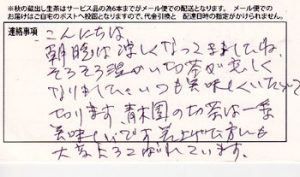 ※秋の蔵出し生茶はサービス品の為6本までがメール便での配送となります。 メール便での
お届けはご自宅のポストへ投函となりますので、代金引換と 配達日時の指定がかけられません。
連絡事項
こんにちは
朝晩は涼しくなってきましたね
そろそろ温かいお茶が恋しく
なりました。いつも美味しくいただいて
おります。青木園のお茶は一番
美味しいです。差し上げた方にも
大変よろこばれています。